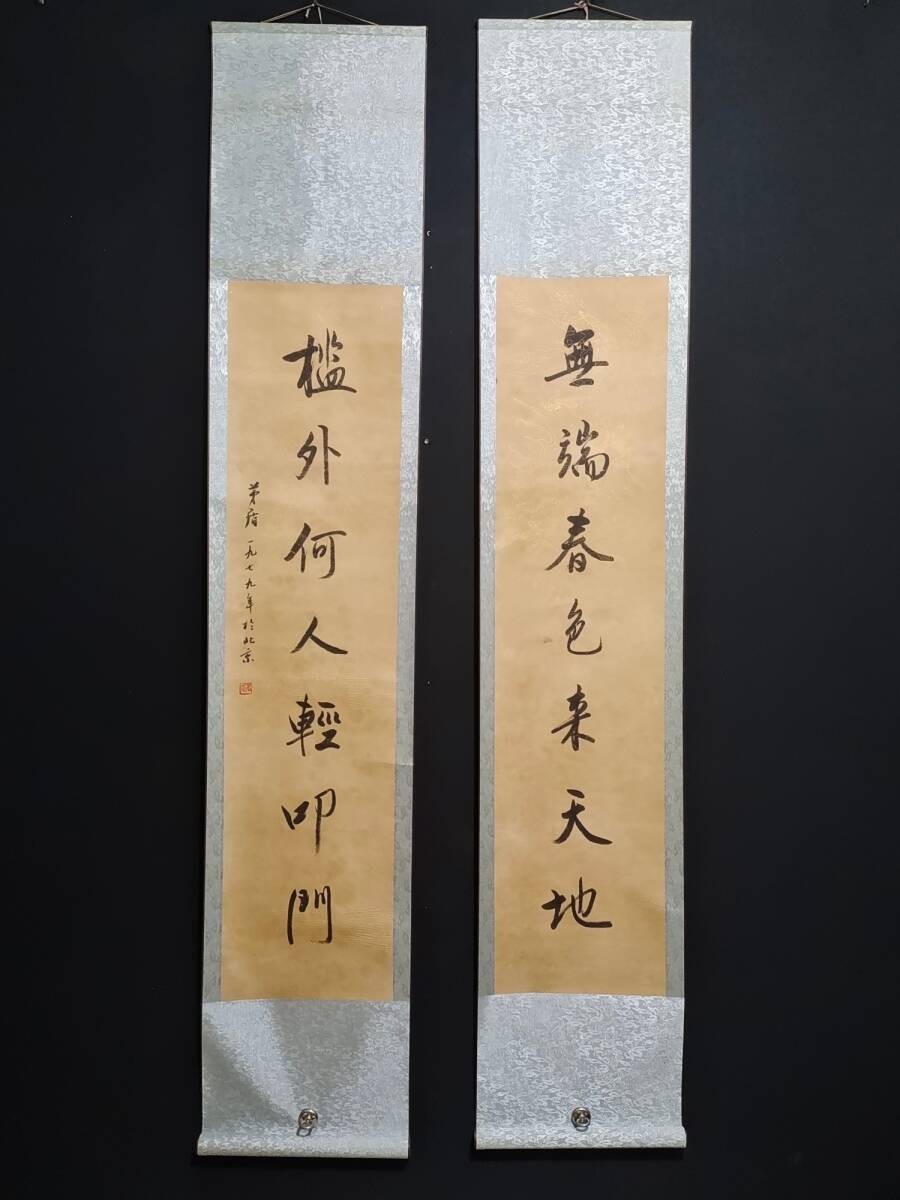 無端春色来天地
檻外何人輕叩門
茅盾 一九七九年於北京